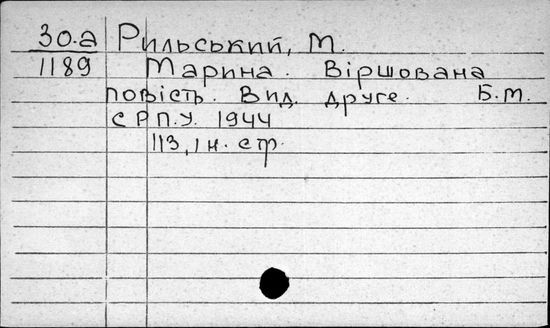 30.а Рильський, М.
1189 Марина. Віршована
повість. Вид. друге. Б.м.
СРПУ. 1944
113, 1 н. стр.